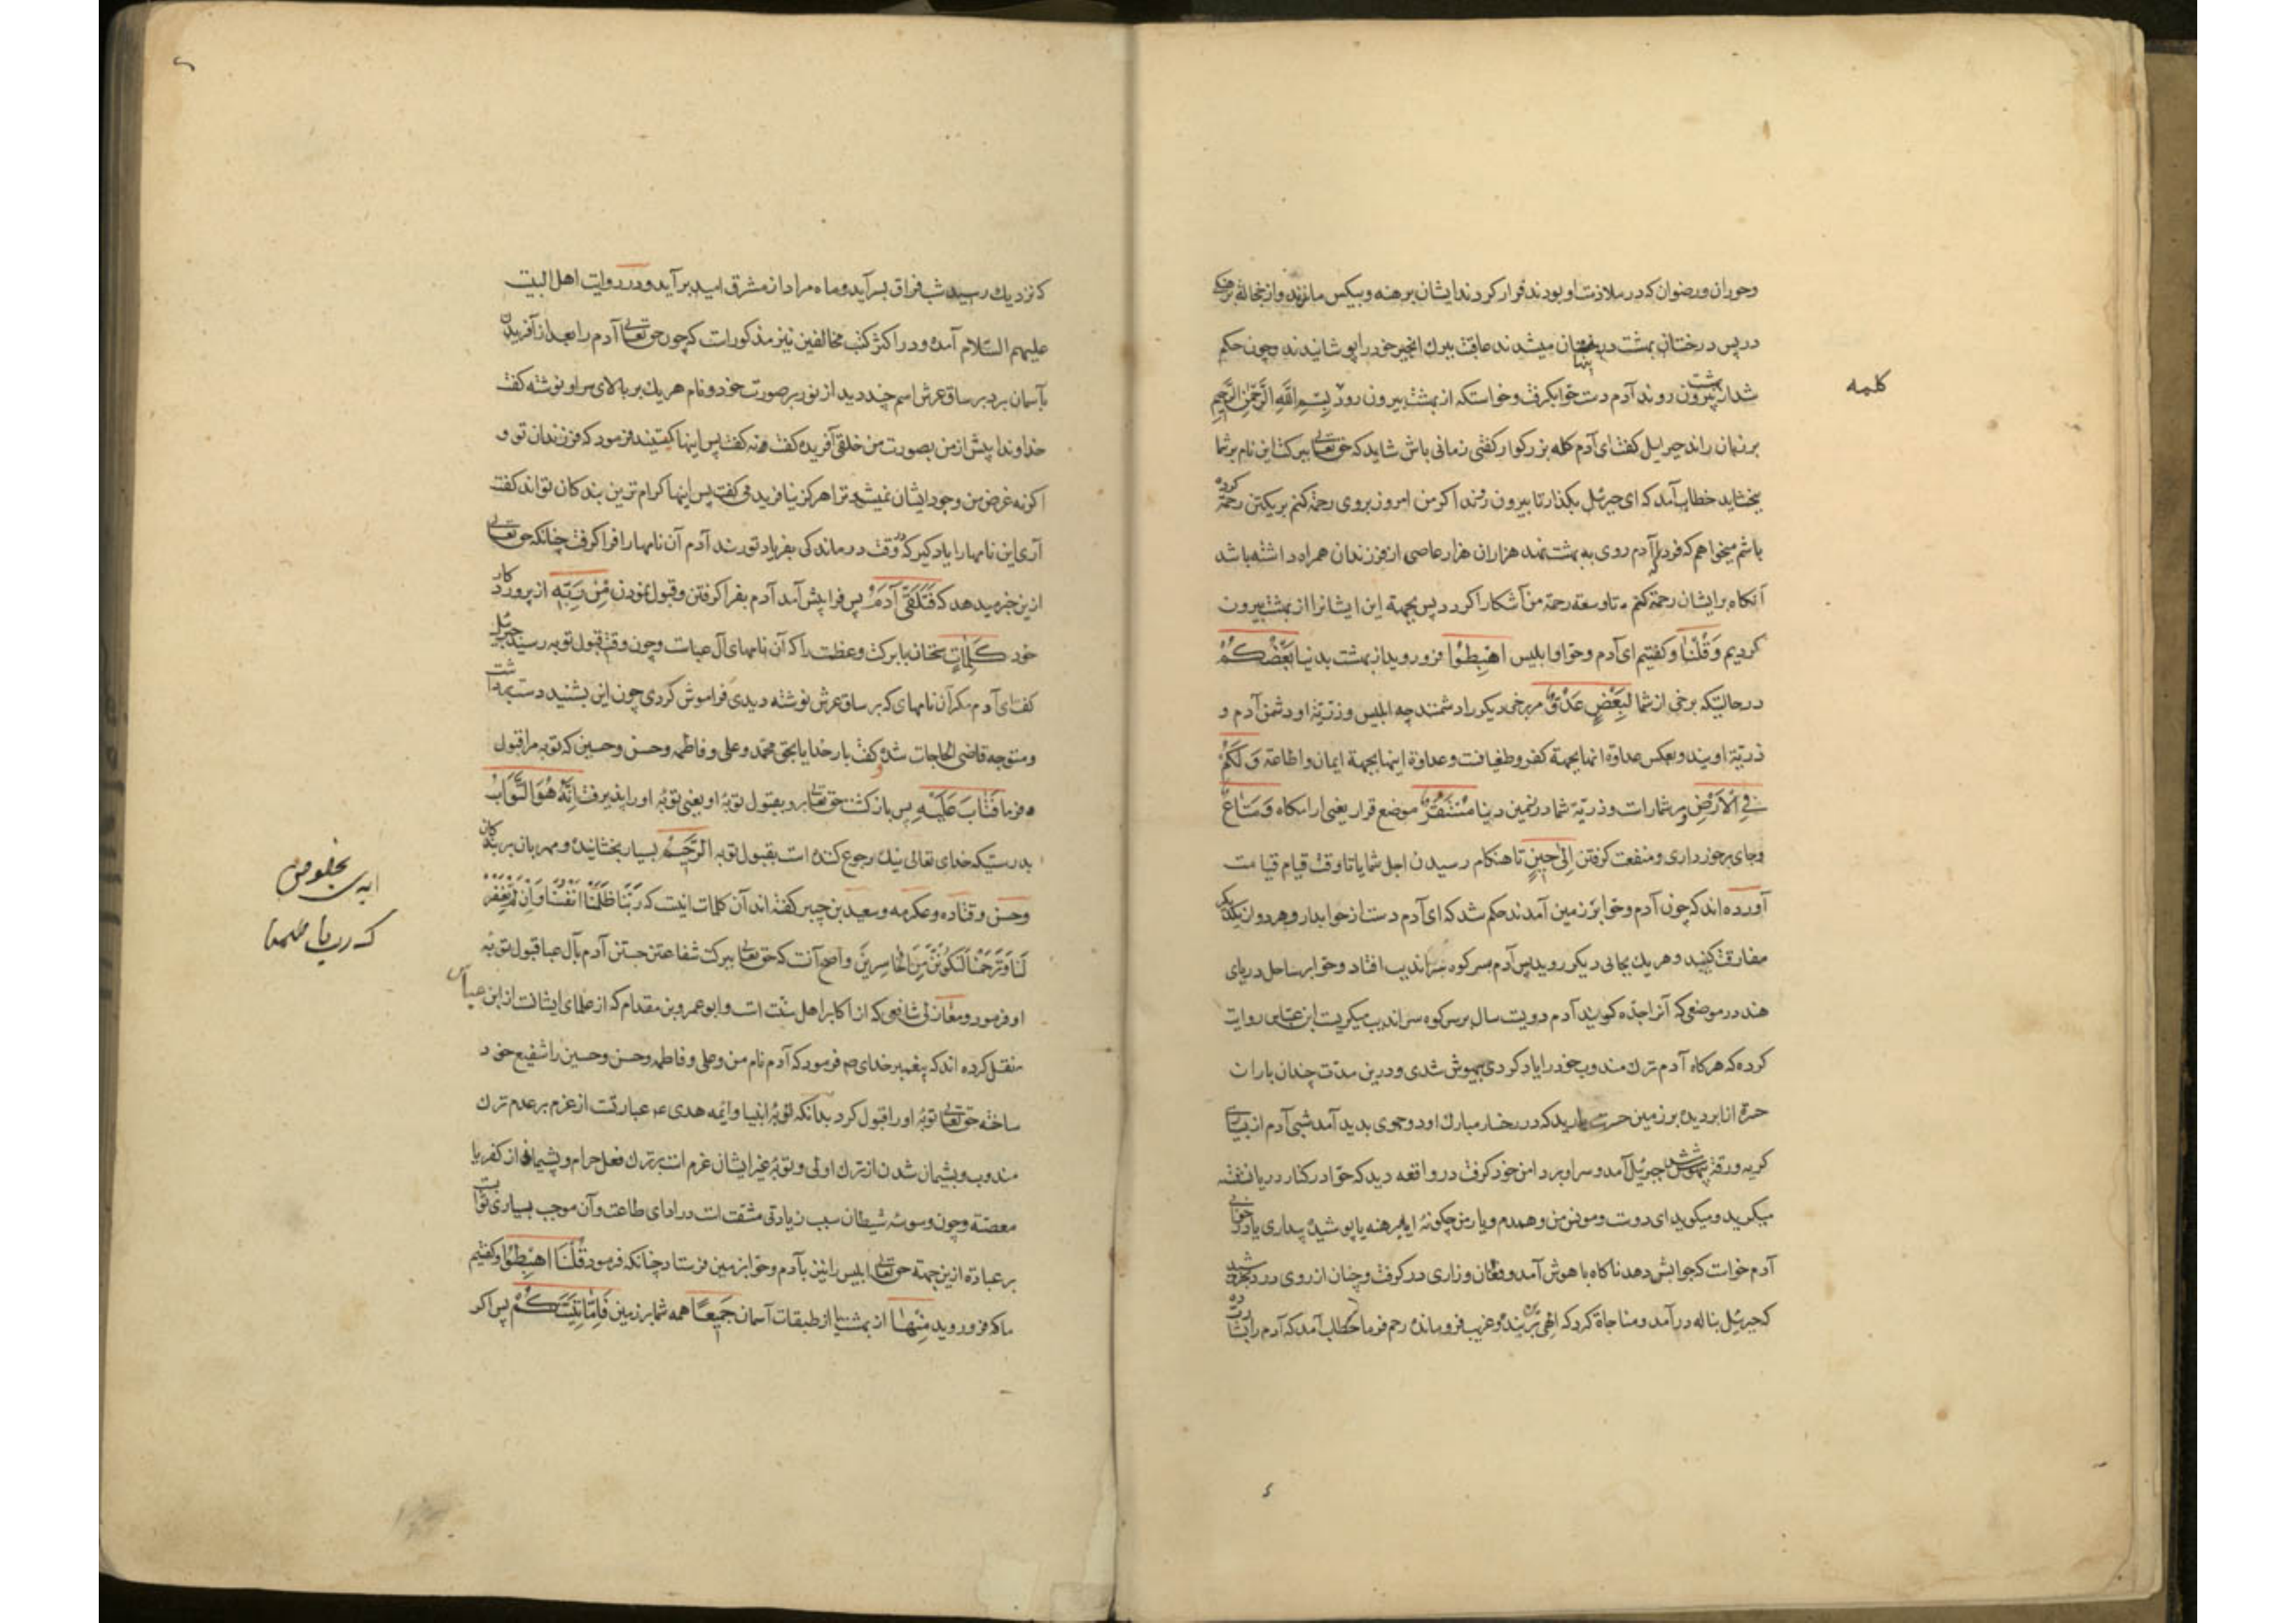 وحوران ورضوان که در ملازمت او بودند فرار کردند ایشان برهنه وبیکس ماندند واز خجالت برهنکی
در پس درختان بهشت پنهان میشدند عاقبت ببرك انجیر خود را پوشانیدند وچون حکم
شد از بهشت بیرون روند آدم دست حوا بکرفت وخواست که از بهشت بیرون رود بِسْمِ اللَّهِ الرَّحْمٰنِ الرَّحِیمِ
کلمه
بر زبان راند جبرایل کفت ای آدم کله بزرکوار کفتی زمانی باش شاید که حق تعالی ببرکت این نام بر شما
ببخشاید خطاب آمد که ای جبرئیل بکذار تا بیرون روند اکر من امروز بروی رحمة کنم بر یکتن رحمة کرده
باشم میخواهم که فردا آدم روی به بهشت نهد هزاران هزار عاصی از فرزندان همراه داشته باشد
آنکاه بر ایشان رحمة کنم تا وسعة رحمة من آشکارا کردد پس بجهة این ایشانرا از بهشت بیرون
کردیم وَقُلْنَا وکفتیم ای آدم وحوا وابلیس اهْبِطُوا فرو روید از بهشت بدنیا بَعْضُکُمْ
در حالتیکه برخی از شما لِبَعْضٍ عَدُوٌّ مر برخی دیکر را دشمنند چه ابلیس وذریّة او دشمن آدم و
ذریّة اویند وبعکس عداوة انها بجهة کفر وطغیانست وعداوة اینها بجهة ایمان واطاعة وَلَکُمْ
فِی الْاَرْضِ ومر شمار است وذریّة شما در زمین دنیا مُسْتَقَرٌّ موضع قرار یعنی ارامکاه وَمَتَاعٌ
وجای برخورداری ومنفعت کرفتن اِلٰی حِینٍ تا هنکام رسیدن اجل شما یا تا وقت قیام قیامت
آورده اند که چون آدم وحوا بر زمین آمدند حکم شد که ای آدم دست از حوا بدار وهر دو از یکدیکر
مفارقت کنید وهر یك بجائی دیکر روید پس آدم بسر کوه سراندیب افتاد وحوا بر ساحل دریای
هند در موضعی که آنرا جدّه کویند آدم دویست سال بر سر کوه سراندیب میکریست ابن عباس روایت
کرده که هرکاه آدم ترك مندوب خود را یاد کردی بیهوش شدی ودرین مدّت چندان باران
حسرة از ابر دیده بر زمین حسرت بارید که در رخسار مبارك او دو جوی بدید آمد شبی آدم از بسیاری
کریه ورقة بیهوش شد جبرئیل آمد وسر او بر دامن خود کرفت در واقعه دید که حوا در کنار دریا نشسته
میکرید ومیکوید ای دوست ومونس من وهمدم ویار من چکونۀ ایا برهنه یا پوشیدۀ بیداری یا در خوابی
آدم خواست که جوابش دهد ناکاه با هوش آمد وفغان وزاری در کرفت وچنان از روی درد بکریست
که جبرئیل بناله در آمد ومناجاة کرد که الهی برین بنده غریب فرو مانده رحم فرما خطاب آمد که آدم را بشارت ده
که نزدیك رسید شب فراق بسر آید وماه مراد از مشرق امید بر آید ودر روایت اهل البیت
علیهم السّلام آمده ودر اکثر کتب مخالفین نیز مذکور است که چون حق تعالی آدم را بعد از آفریدن
بآسمان برد بر ساق عرش اسم چند دید از نور بر صورت خود ونام هر یك بر بالای سر او نوشته کفت
خداوندا پیش از من بصورت من خلقی آفریده کفت نه کفت پس اینها کیستند فرمود که فرزندان تو و
اکر نه غرض من وجود ایشان نمیشد ترا هرکز نیافریدمی کفت پس اینها کرامترین بندکان تواند کفت
آری این نامها را یاد کیر که در وقت درماندکی بفریاد تو رسند آدم آن نامها را فرا کرفت چنانکه حق تعالی
ازین خبر میدهد که فَتَلَقّٰی آدَمُ پس فرا پیش آمد آدم بفرا کرفتن وقبول نمودن مِنْ رَبِّهِ از پروردکار
خود کَلِمَاتٍ سخنان با برکت وعظمت را که آن نامهای آل عباست وچون وقت قبول توبه رسید جبرئیل
کفت ای آدم مکر آن نامهای که بر ساق عرش نوشته دیدی فراموش کردی چون این بشنید دست برداشت
ومتوجه قاضی الحاجات شده وکفت بار خدایا بحق محمّد وعلی وفاطمه وحسن وحسین که توبه مرا قبول
فرما فَتَابَ عَلَیْهِ پس باز کشت حق تعالی برو بقبول توبۀ او یعنی توبۀ او را پذیرفت اِنَّهُ هُوَ التَّوَّابُ
بدرستیکه خدای تعالی نیك رجوع کننده است بقبول توبه الرَّحِیمُ بسیار بخشاینده ومهربان بر بندکان
وحسن وقتاده وعکرمه وسعید بن جبیر کفته اند آن کلمات اینست که رَبَّنَا ظَلَمْنَا اَنْفُسَنَا وَاِنْ لَمْ تَغْفِرْ
لَنَا وَتَرْحَمْنَا لَنَکُونَنَّ مِنَ الْخَاسِرِینَ واصح آنست که حق تعالی ببرکت شفاعتن جستن آدم بآل عبا قبول توبه
او فرمود ومغازلی شافعی که از اکابر اهل سنّت است وابو عمرو بن مقدام که از علمای ایشانست از ابن عباس
نقل کرده اند که پیغمبر خدای ص فرمود که آدم نام من وعلی وفاطمه وحسن وحسین را شفیع خود
ساخته حق تعالی توبۀ او را قبول کرد بدانکه توبۀ انبیا وائمه هدی ع عبارتست از عزم بر عدم ترك
مندوب وپشیمان شدن از ترك اولی وتوبۀ غیر ایشان عزم است بر ترك فعل حرام وپشیمان از کفر یا
معصیة وچون وسوسۀ شیطان سبب زیادتی مشقت است در ادای طاعت وآن موجب بسیاری ثواب
بر عبادة ازین جهة حق تعالی ابلیس را نیز بآدم وحوا بزمین فرستاد چنانکه فرمود قُلْنَا اهْبِطُوا وکفتیم
ما که فرو روید مِنْهَا از بهشت یا از طبقات آسمان جَمِیعًا همه شما بر زمین فَاِمَّا یَاْتِیَنَّکُمْ پس اکر
که ربنا ظلمنا